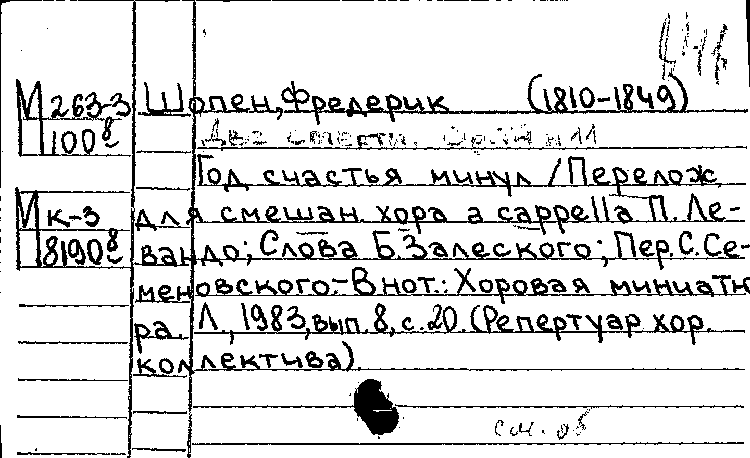 М 263-3 Шопен, Фредерик (1810-1849)
100 8 Две смерти. Op.74 n 11
Год счастья минул / Перелож.
М к-3 для смешан. хора a cappella П. Ле-
8190 8 вандо; Слова Б. Залеского; Пер. С. Се-
меновского.- В нот.: Хоровая миниатю
ра. Л., 1983, вып. 8, с. 20. (Репертуар хор.
коллектива).
см. об